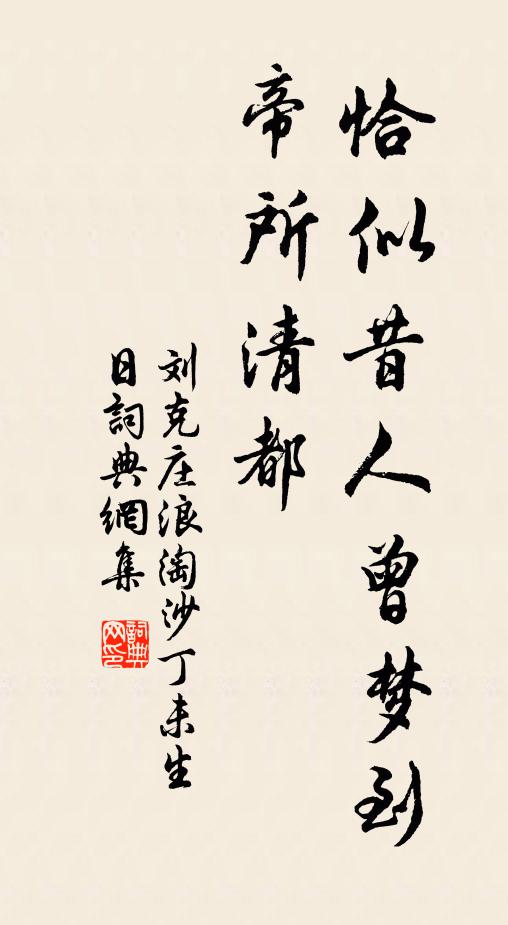 恰似昔人曾梦到
帝所清都
刘克庄浪淘沙丁未生
日詞典網集
詞典
网印